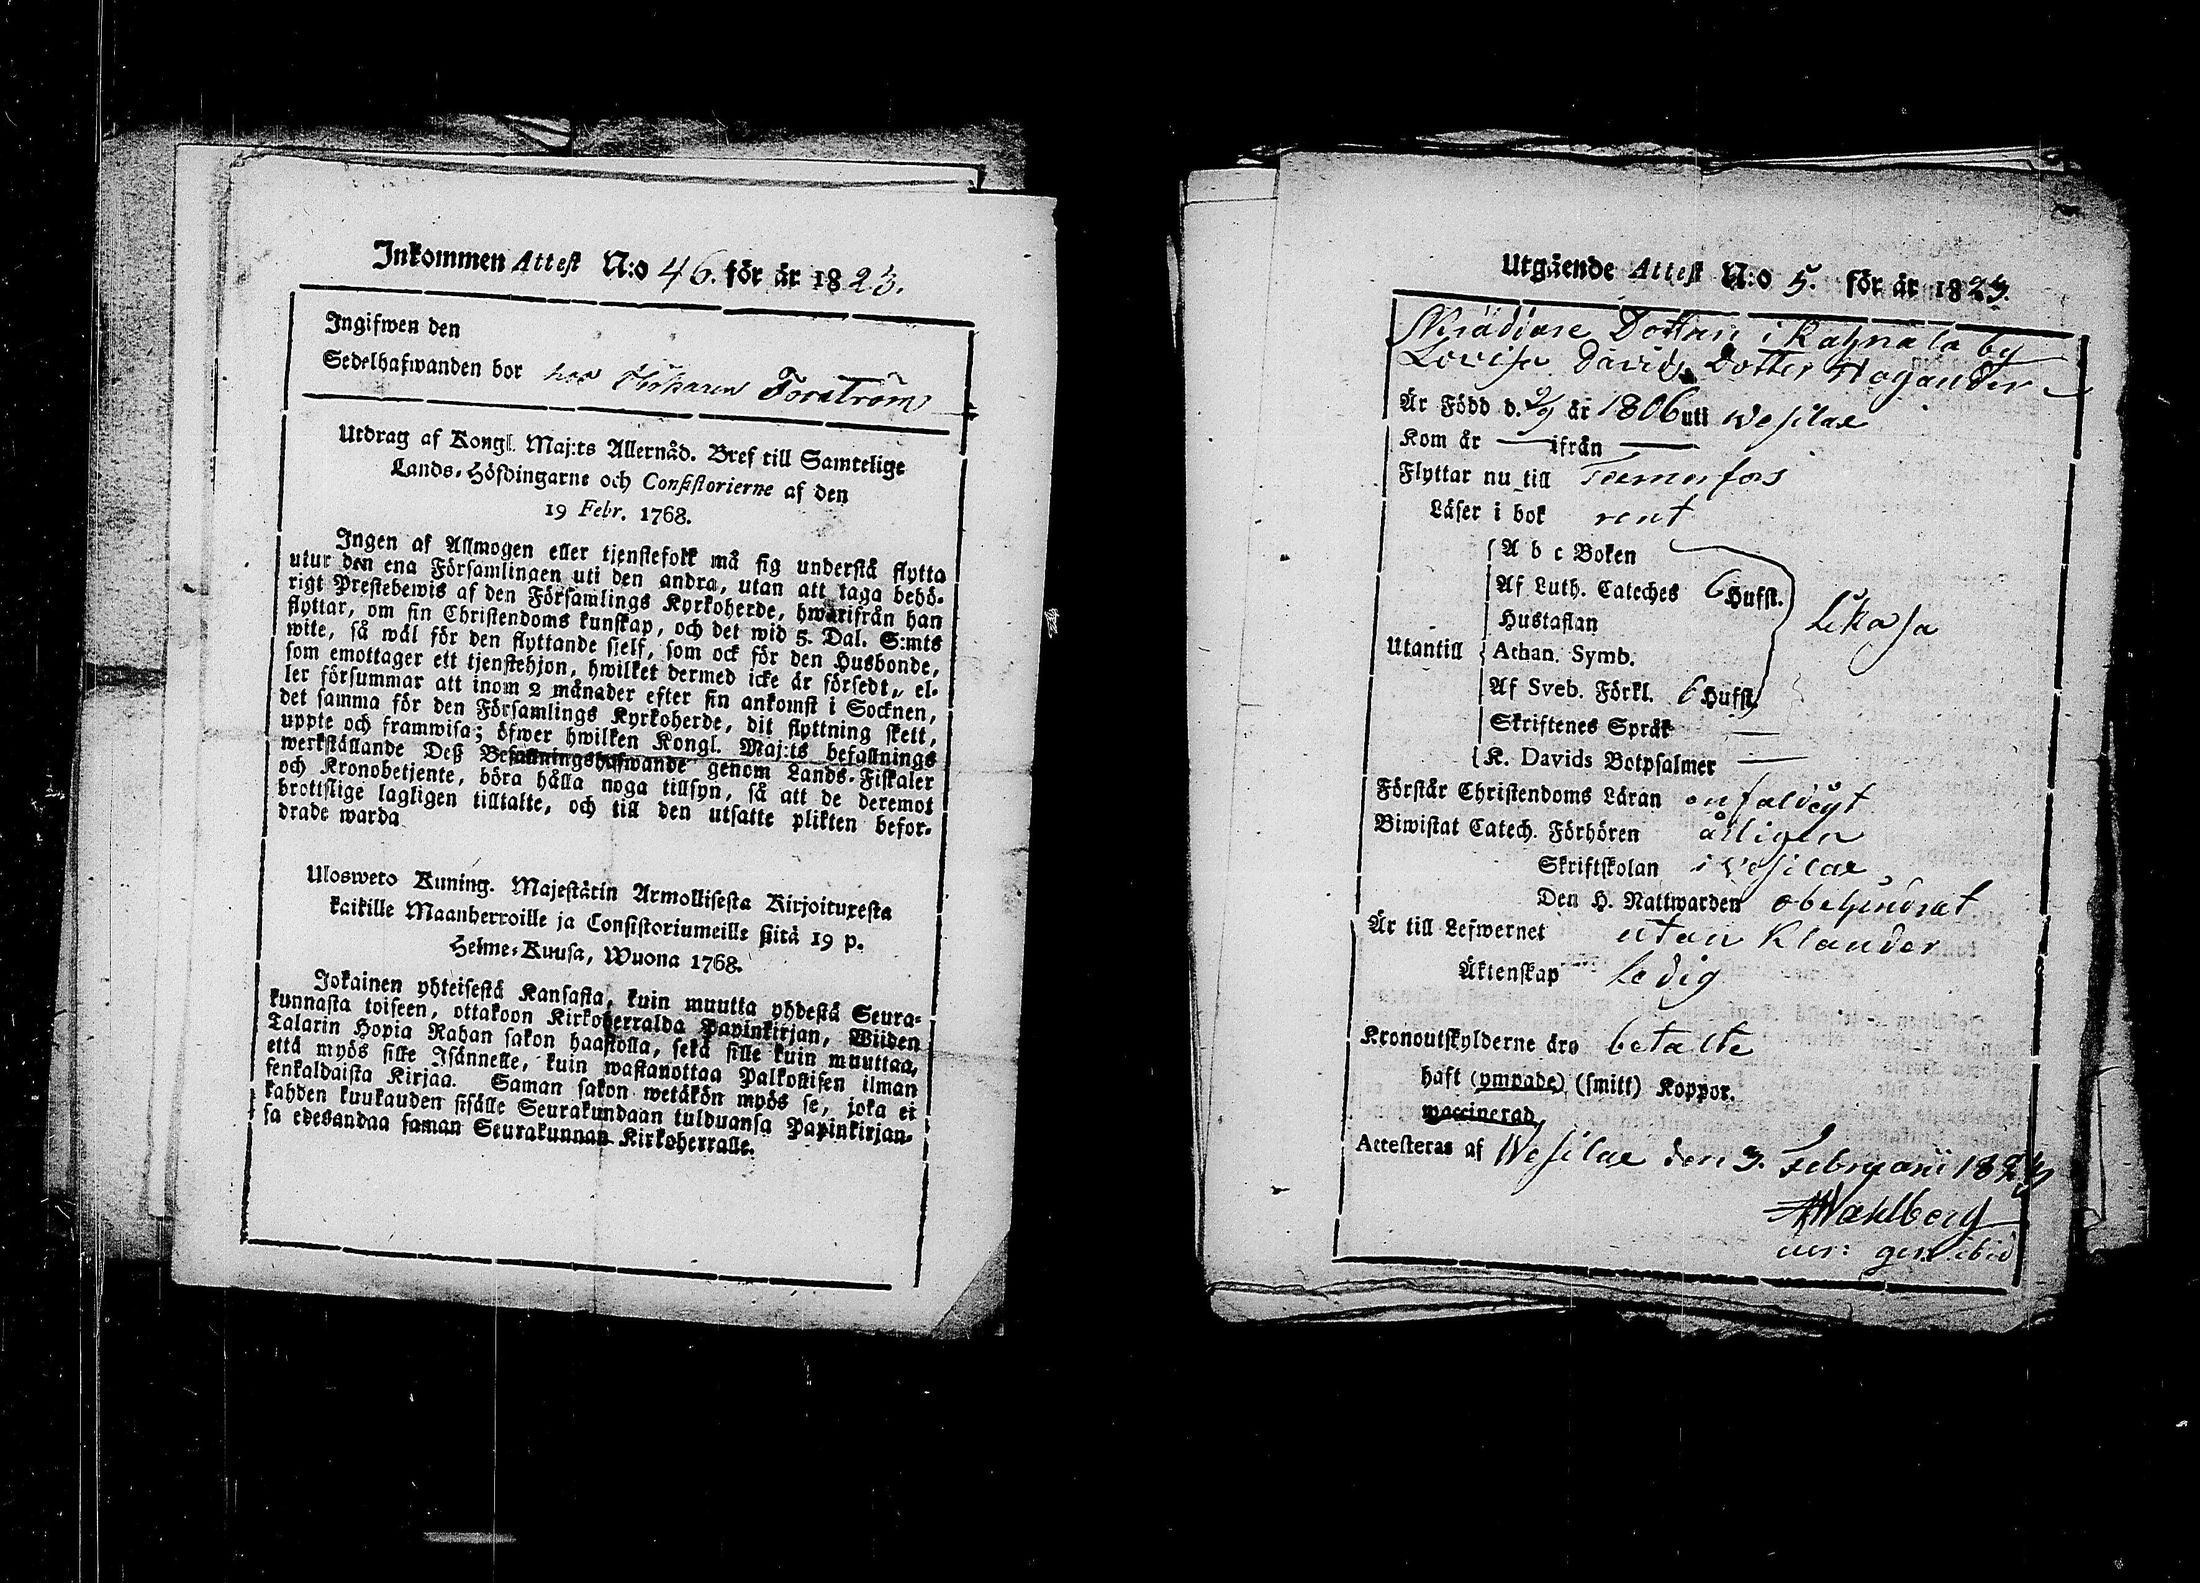 Inkommen Attest N:o 46. för år 1823.
Ingifwen den
Sedelhafwanden bor hos Forström
Utdrag af Kongl. Maj:ts Allernåd. Bref till Samtelige
Lands-Höfdingarne och Consistorierne af den
19 Febr. 1768.
Ingen af Allmogen eller tjenstefolk må sig understå flytta
utur den ena Församlingen uti den andra, utan att taga behö-
rigt Prestebewis af den Församlings Kyrkoherde, hwarifrån han
flyttar, om sin Christendoms kunskap, och det wid 5. Dal. S:mts
wite, så wäl för den flyttande sielf, som ock för den Husbonde,
som emottager ett tjenstehjon, hwilket dermed icke är försedt, el-
ler försummar att inom 2 månader efter sin ankomst i Socknen,
det samma för den Församlings Kyrkoherde, dit flyttning skett,
uppte och framwisa; öfwer hwilken Kongl. Maj:ts befallnings
werkställande Deß Befallningshafwande genom Lands-Fiskaler
och Kronobetjente, böra hålla noga tillsyn, så att de deremot
brottslige lagligen tilltalte, och till den utsatte plikten befor-
drade warda
Ulosweto Kuning. Majestätin Armollisesta Kirjoituxesta
kaikille Maanherroille ja Consistoriumeille ßitä 19 p.
Helme-Kuusa, Wuona 1768.
Jokainen yhteisestä Kansasta, kuin muutta yhdestä Seura-
kunnasta toiseen, ottakoon Kirkoherralda Papinkirjan, Wiiden
Talarin Hopia Rahan sakon haastolla, sekä sille kuin muuttaa,
että myös sille Isännelle, kuin wastanottaa Palkollisen ilman
senkaldaista Kirjaa. Saman sakon wetäkön myös se, joka ei
kahden kuukauden sisälle Seurakundaan tulduansa Papinkirjan-
sa edesandaa saman Seurakunnan Kirkoherralle.
Utgående Attest N:o 5. för år 1823.
Dottren i by
Lovisa Davids Dotter
Är Född d. 9/9 år 1806 uti Wesilax
Kom år — ifrån —
Flyttar nu till Tammerfors
Läser i bok rent
A b c Boken
Af Luth. Cateches 6 Hufst.
Hustaflan
likaså
Utantill Athan. Symb.
Af Sveb. Förkl. 6 Hufst.
Skriftenes Språk —
K. Davids Botpsalmer —
Förstår Christendoms Läran enfaldigt
Biwistat Catech. Förhören årligen
Skriftskolan i Wesilax
Den H. Nattwarden obehindrat
Är till Lefwernet utan klander
Äktenskap ledig
Kronoutskylderne äro betalte
haft (ympade) (smitt) Koppor.
waccinerad
Attesteras af Wesilax den 3. Februarii 1823
Wahlberg